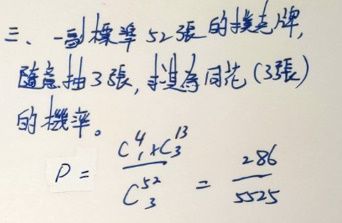 三、一副標準52張的撲克牌,
隨意抽3張,求為同花(3張)
的機率。
P = C^4_1 × C^13_3 / C^52_3 = 286 / 5525